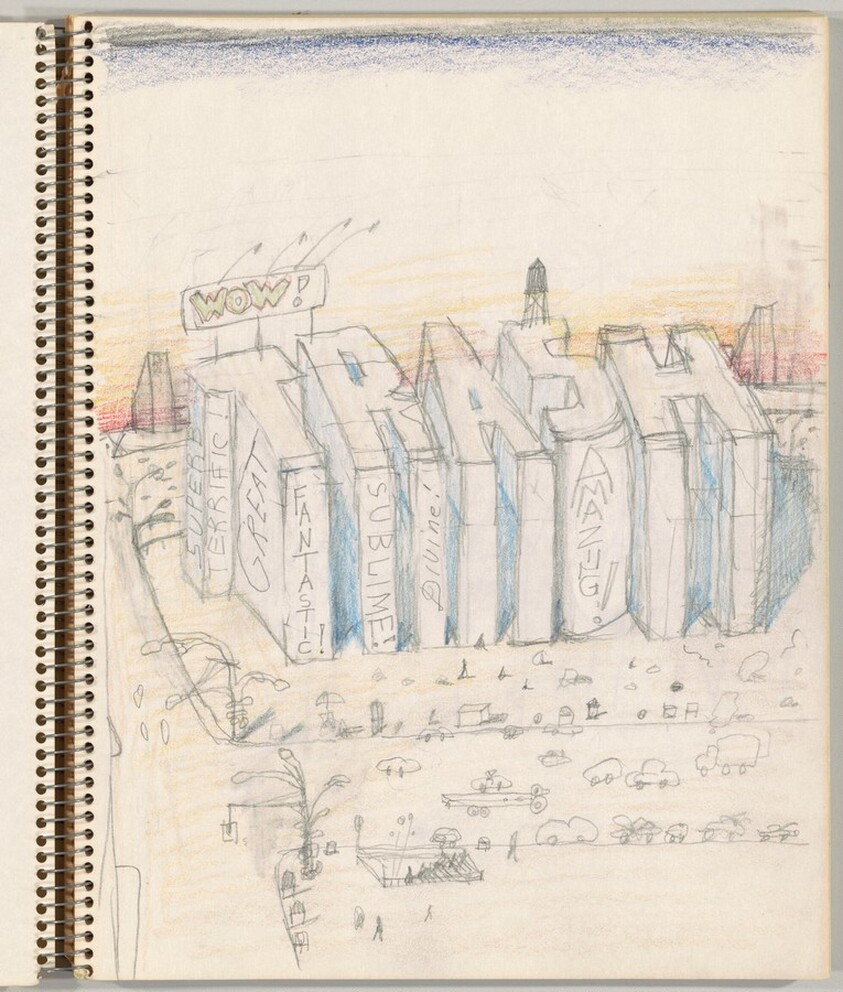 WOW!
TRASH
SUPERB
TERRIFIC!
GREAT
FANTASTIC!
SUBLIME!
Divine!
AMAZIG!